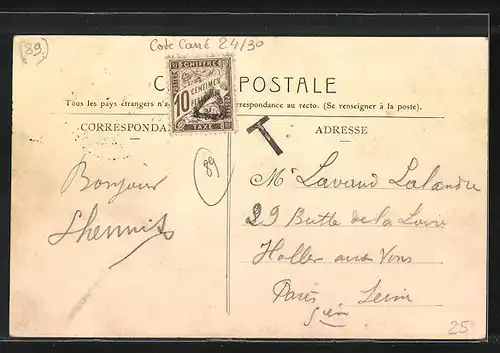 89
Cote Carré 24/30
CHIFFRE
POSTES
10 CENTIMES
TAXE
C POSTALE
Tous les pays étrangers n'a correspondance au recto. (Se renseigner à la poste).
CORRESPONDA
ADRESSE
T
89
Bonjour
Mr Lavaud Lalande
29 Butte de la Loire
Paris Seine
25